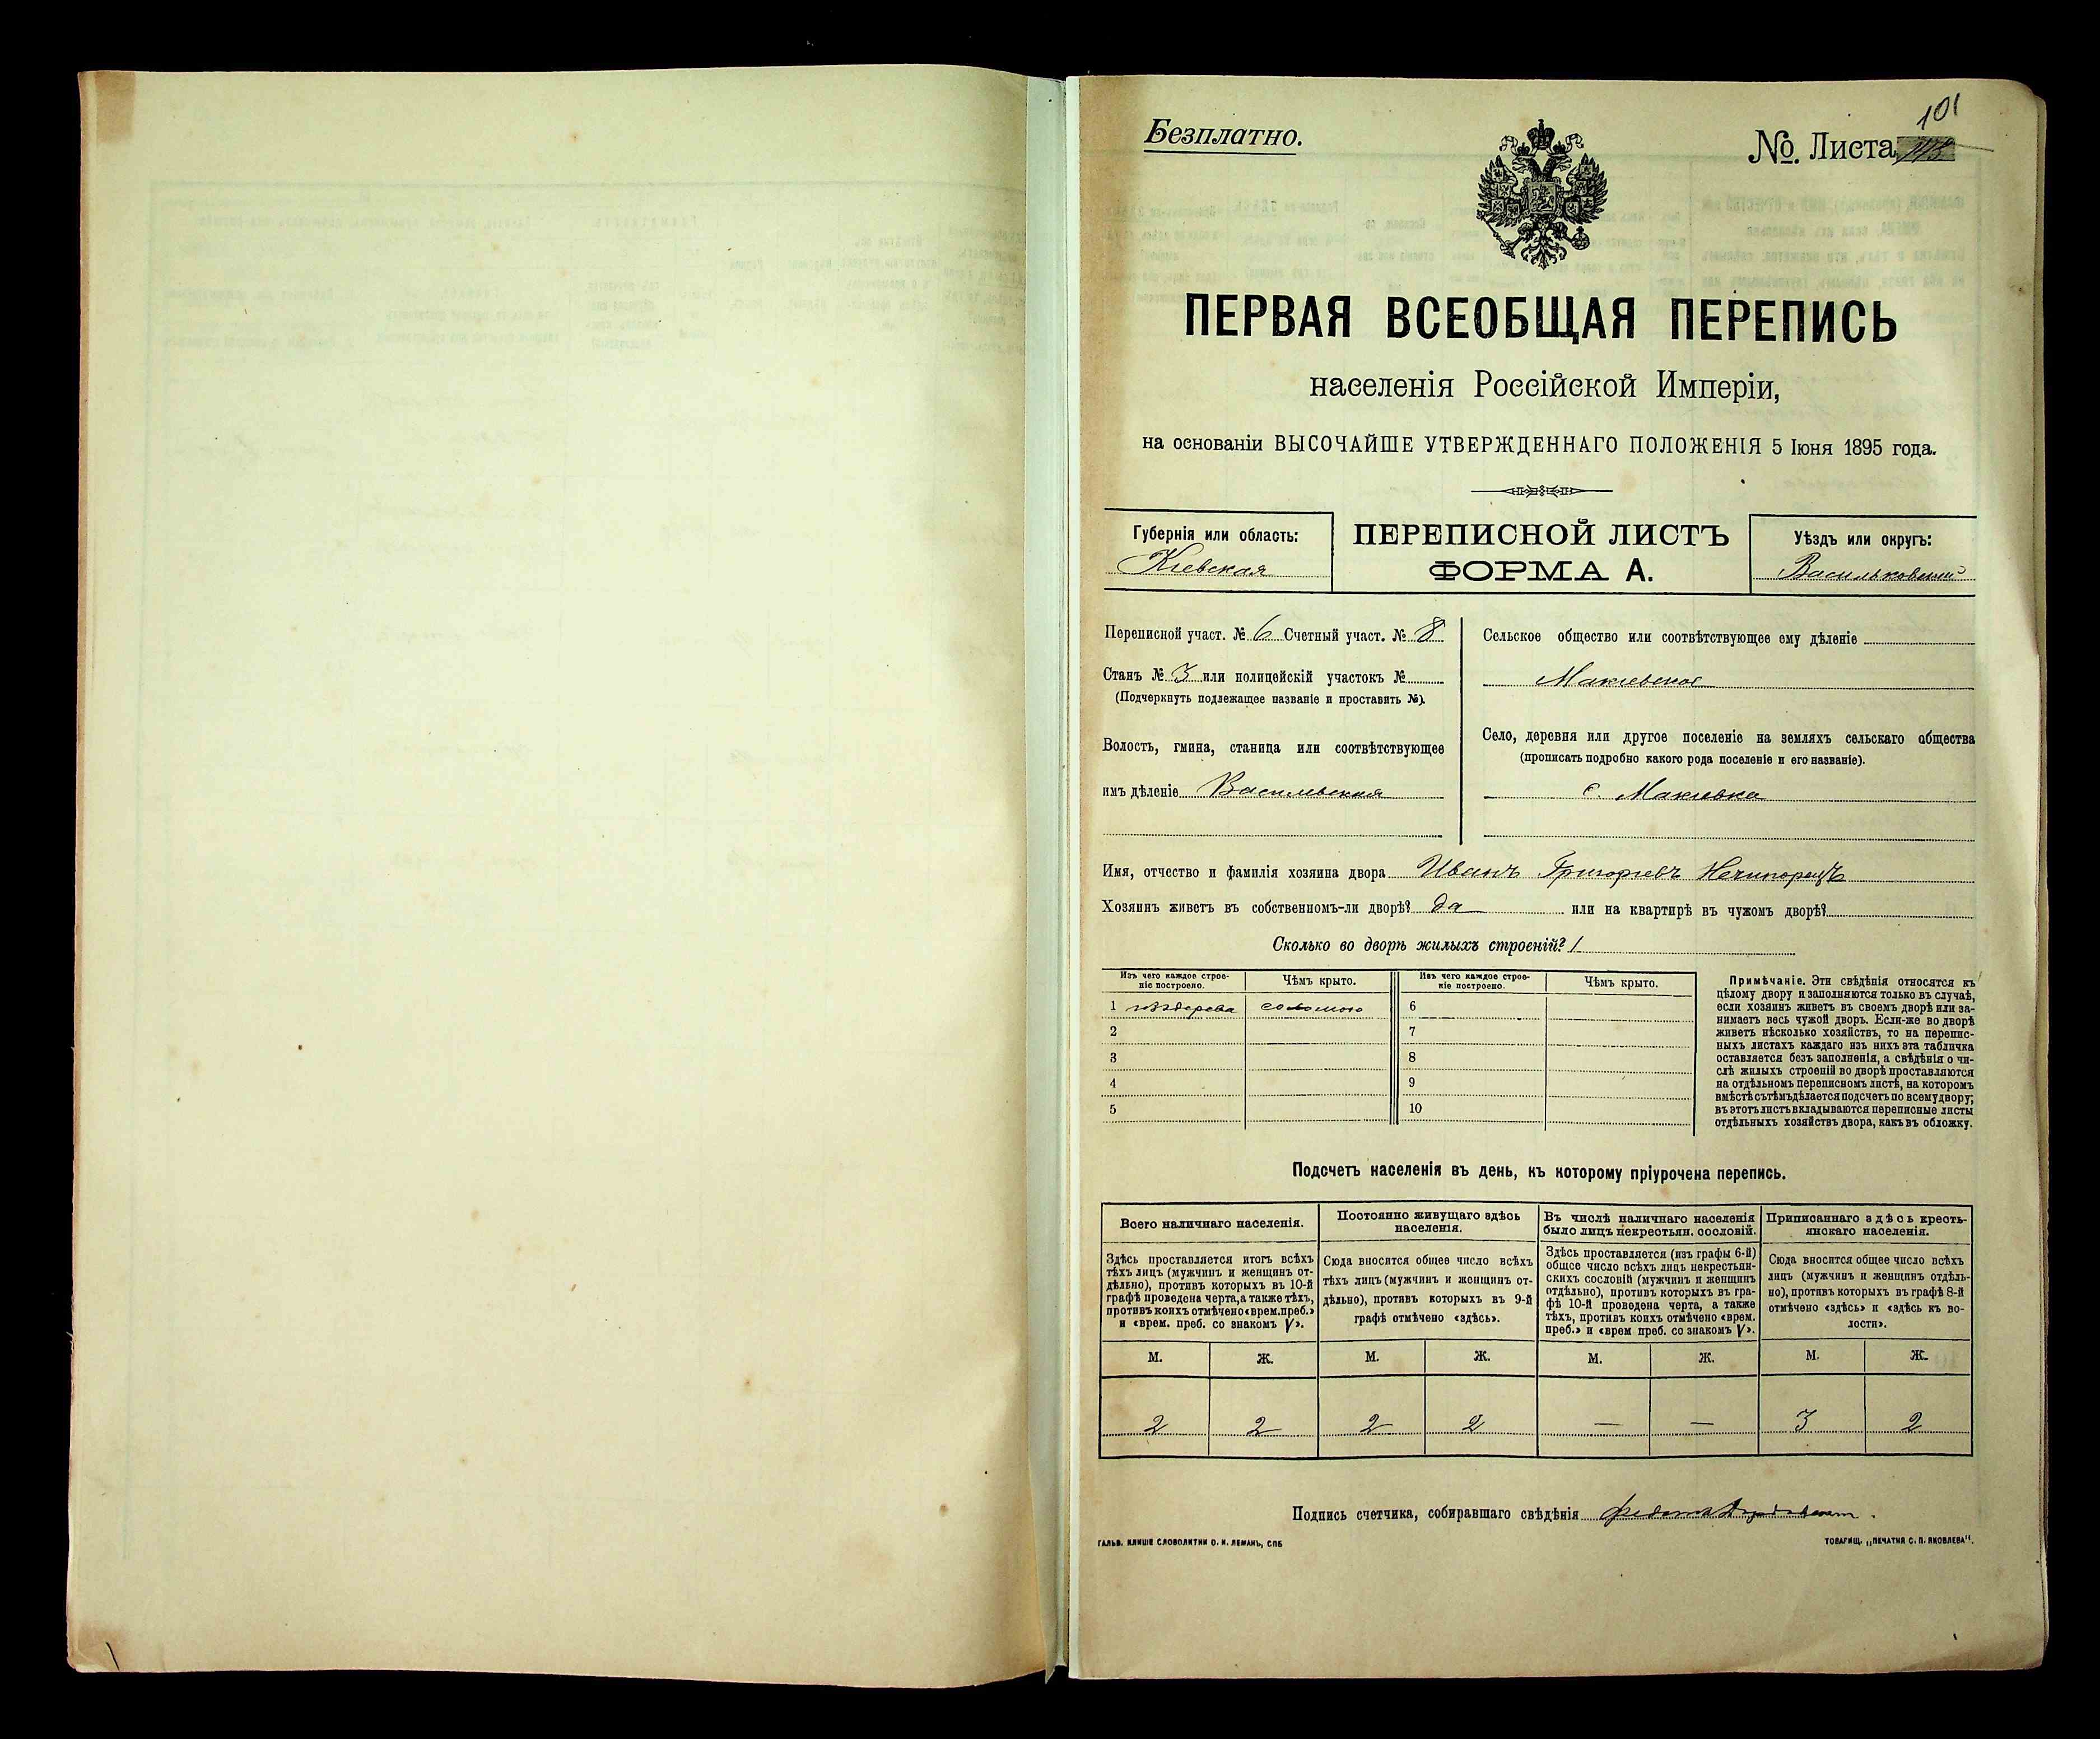 Безплатно.
101
№. Листа
ПЕРВАЯ ВСЕОБЩАЯ ПЕРЕПИСЬ
населенія Россійской Имперіи,
на основаніи ВЫСОЧАЙШЕ УТВЕРЖДЕННАГО ПОЛОЖЕНІЯ 5 Іюня 1895 года.
Губернія или область:
Кіевская
ПЕРЕПИСНОЙ ЛИСТЪ
ФОРМА А.
Уѣздъ или округъ:
Васильковскій
Переписной участ. № 6 Счетный участ. № 8
Станъ № 3 или полицейскій участокъ №
(Подчеркнуть подлежащее названіе и проставить №).
Волость, гмина, станица или соотвѣтствующее
имъ дѣленіе
Сельское общество или соотвѣтствующее ему дѣленіе
Макіевское
Село, деревня или другое поселеніе на земляхъ сельскаго общества
(прописать подробно какого рода поселеніе и его названіе).
с. Макіевка
Имя, отчество и фамилія хозяина двора Иванъ Григорьевъ Нечипорецъ
Хозяинъ живетъ въ собственномъ-ли дворѣ? да или на квартирѣ въ чужомъ дворѣ?
Сколько во дворѣ жилыхъ строеній? 1
Изъ чего каждое строе-
ніе построено.
Чѣмъ крыто.
Изъ чего каждое строе-
ніе построено.
Чѣмъ крыто.
1 изъ дерева соломою 6
2 7
3 8
4 9
5 10
Примѣчаніе. Эти свѣдѣнія относятся къ
цѣлому двору и заполняются только въ случаѣ,
если хозяинъ живетъ въ своемъ дворѣ или за-
нимаетъ весь чужой дворъ. Если-же во дворѣ
живетъ нѣсколько хозяйствъ, то на перепис-
ныхъ листахъ каждаго изъ нихъ эта табличка
оставляется безъ заполненія, а свѣдѣнія о чи-
слѣ жилыхъ строеній во дворѣ проставляются
на отдѣльномъ переписномъ листѣ, на которомъ
вмѣстѣ съ тѣмъ дѣлается подсчетъ по всему двору;
въ этотъ листъ вкладываются переписные листы
отдѣльныхъ хозяйствъ двора, какъ въ обложку.
Подсчетъ населенія въ день, къ которому пріурочена перепись.
Всего наличнаго населенія.
Здѣсь проставляется итогъ всѣхъ
тѣхъ лицъ (мужчинъ и женщинъ от-
дѣльно), противъ которыхъ въ 10-й
графѣ проведена черта, а также тѣхъ,
противъ коихъ отмѣчено «врем. преб.»
и «врем. преб. со знакомъ V».
Постоянно живущаго здѣсь
населенія.
Сюда вносится общее число всѣхъ
тѣхъ лицъ (мужчинъ и женщинъ от-
дѣльно), противъ которыхъ въ 9-й
графѣ отмѣчено «здѣсь».
Въ числѣ наличнаго населенія
было лицъ некрестьян. сословій.
Здѣсь проставляется (изъ графы 6-й)
общее число всѣхъ лицъ некрестьян-
скихъ сословій (мужчинъ и женщинъ
отдѣльно), противъ которыхъ въ гра-
фѣ 10-й проведена черта, а также
тѣхъ, противъ коихъ отмѣчено «врем.
преб.» и «врем преб. со знакомъ V».
Приписаннаго здѣсь кресть-
янскаго населенія.
Сюда вносится общее число всѣхъ
лицъ (мужчинъ и женщинъ отдѣль-
но), противъ которыхъ въ графѣ 8-й
отмѣчено «здѣсь» и «здѣсь къ во-
лости».
М. Ж. М. Ж. М. Ж. М. Ж.
2 2 2 2 — — 3 2
Подпись счетчика, собиравшаго свѣдѣнія
ГАЛЬВ. КЛИШЕ СЛОВОЛИТНИ О. И. ЛЕМАНЪ, СПБ
ТОВАРИЩ. „ПЕЧАТНЯ С. П. ЯКОВЛЕВА".